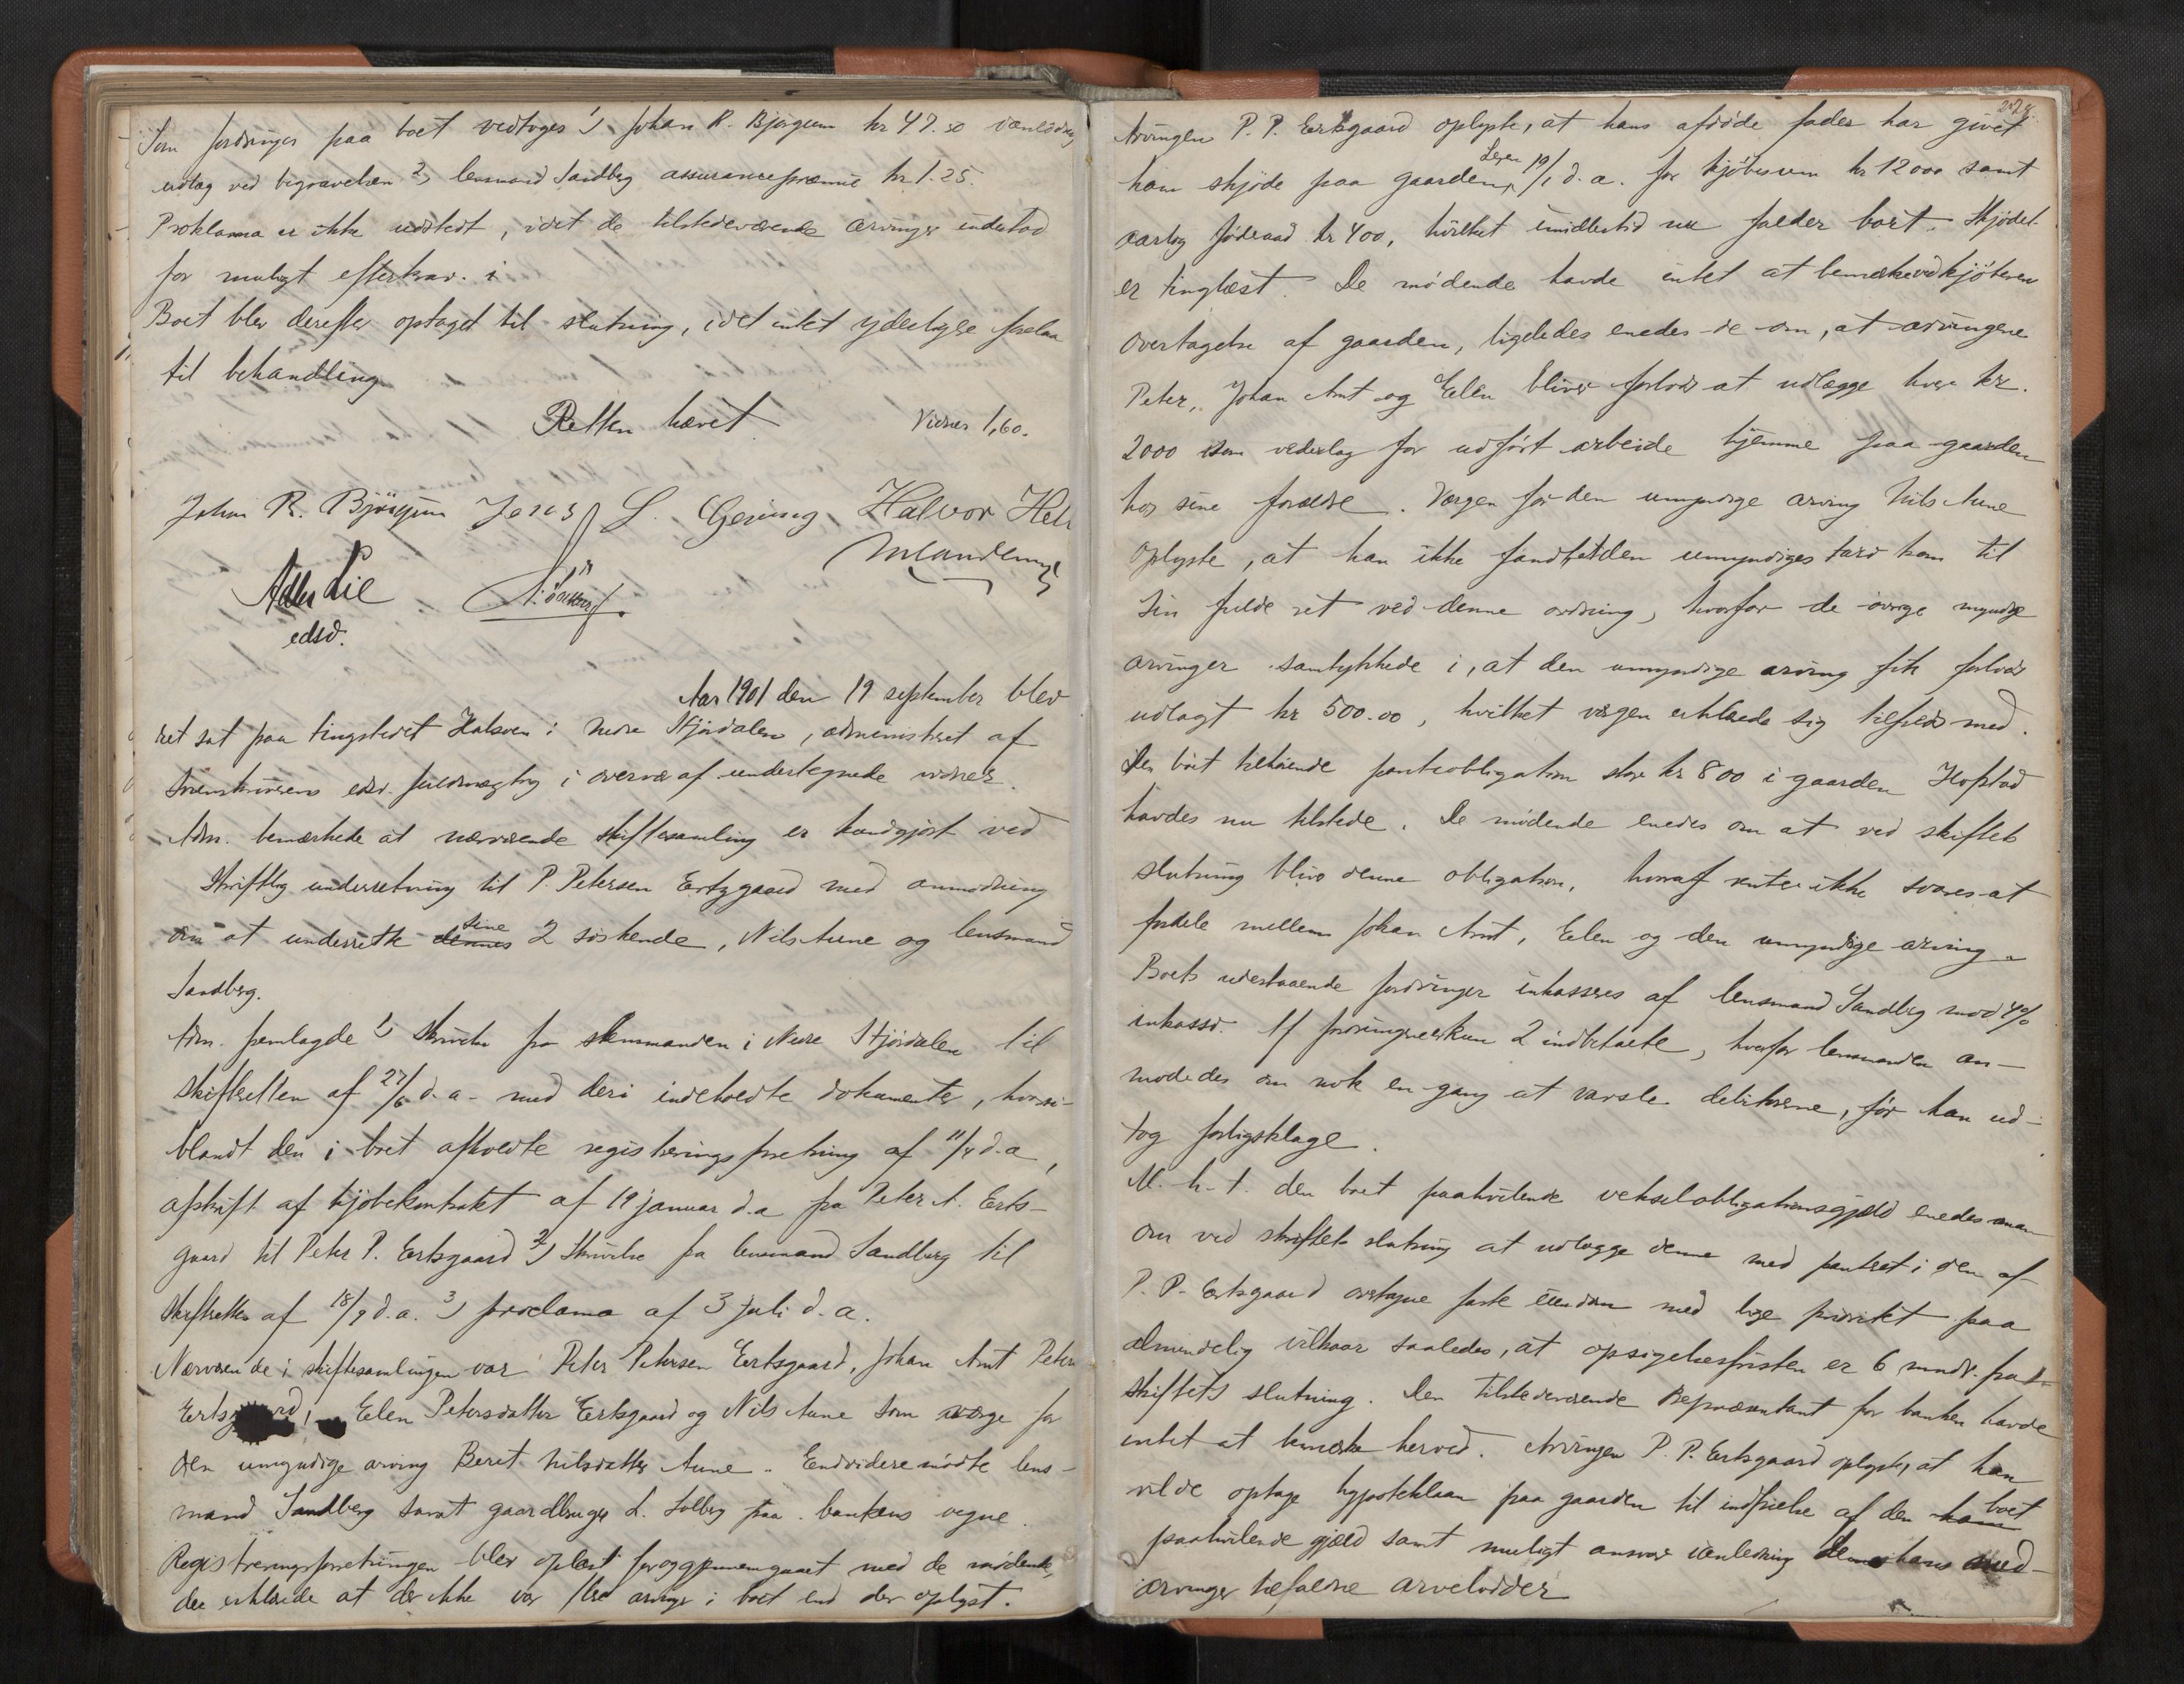 Som fordringer paa boet vedtoges 1) Johan R. Bjørgum kr 47.50
udlæg ved begravelsen 2) lensmand Sandberg assurancepræmie kr 1.25.
Proklama er ikke udstedt, idet de tilstedeværende arvinger indestod
for muligt efterkrav. i
Boet blev derefter optaget til slutning, idet intet yderligere forelaa
til behandling
Retten hævet Vidner 1,60.
Johan R. Bjørgum Jonas L. Gjeving Halvor
Lie
edsv.
Aar 1901 den 19 september blev
ret sat paa tingstedet Halsøen i Nedre Stjørdalen, administreret af
sorenskriverens edsv. fuldmægtig i overvær af undertegnede vidner.
Adm. bemærkede at nærværende skiftesamling er kundgjort ved
Skriftlig underretning til P. Petersen Ertsgaard med anmodning
om at underrette dennes sine 2 søskende, Nils Aune og lensmand
Sandberg.
Adm. fremlagde 1) Skrivelse fra lensmanden i Nedre Stjørdalen til
skifteretten af 27/6 d.a. med deri indeholdte dokumenter, hvori-
blandt den i boet afholdte registreringsforretning af 11/4 d.a,
afskrift af kjøbekontrakt af 19 januar d.a fra Peter A. Erts-
gaard til Peter P. Ertsgaard 2) Skrivelse fra lensmand Sandberg til
Skifteretten af 18/9 d.a. 3) proclama af 3 juli d.a.
Nærværende i skiftesamlingen var Peter Petersen Ertsgaard, Johan Arnt Peters
Ertsgaard, Elen Petersdatter Ertsgaard og Nils Aune som værge for
den umyndige arving Beret Nilsdatter Aune. Endvidere mødte lens-
mand Sandberg samt gaardbruger L. Solberg paa bankens vegne.
Registreringsforretningen blev oplæst og gjennemgaaet med de mødende,
der erklærede at der ikke var flere arvinger i boet end der oplyst.
278
Arvingen P. P. Ertsgaard oplyste, at hans afdøde fader har givet
ham skjøde paa gaarden 19/1 d.a. for kjøbesum kr 12000 samt
aarlig føderaad kr 400, hvilket imidlertid nu falder bort. Skjødet
er tinglæst. De mødende havde intet at bemærke ved kjøberens
overtagelse af gaarden, ligeledes enedes de om, at arvingene
Peter, Johan Arnt og Elen bliver forlods at udlægge hver kr.
2000 som vederlag for udført arbeide hjemme paa gaarden
hos sine forældre. Værgen for den umyndige arving Nils Aune
oplyste, at han ikke fandt at den umyndiges tarv kom til
sin fulde ret ved denne ordning, hvorfor de øvrige myndige
arvinger samtykkede i, at den umyndige arving fik forlods
udlagt kr 500.00, hvilket værgen erklærede sig tilfreds med.
Den boet tilhørende panteobligation stor kr 800 i gaarden Hofstad
havdes nu tilstede. De mødende enedes om at ved skiftets
slutning bliver denne obligation, hvoraf renter ikke svares at
fordele mellem Johan Arnt, Elen og den umyndige arving.
Boets udestaaende fordringer inkasseres af lensmand Sandberg mod 4%
inkasso. Af fordringer er kun 2 indbetalte, hvorfor lensmanden an-
modedes om nok en gang at varsle debitorerne, før han ud-
tog forligsklage.
M. h. t. den boet paahvilende vekselobligationsgjæld enedes man
om ved skiftets slutning at udlægge denne med panteret i den af
P. P. Ertsgaard overtagne faste eiendom med lige prioritet paa
almindelig vilkaar saaledes, at opsigelsesfristen er 6 mndr. fra
skiftets slutning. Den tilstedeværende Repræsentant for banken havde
intet at bemærke herved. Arvingen P. P. Ertsgaard oplyste, at han
vilde optage hypotheklaan paa gaarden til indfrielse af den ham boet
paahvilende gjæld samt muligt ansvar i anledning hans med-
arvinger tilfaldne arvelodder